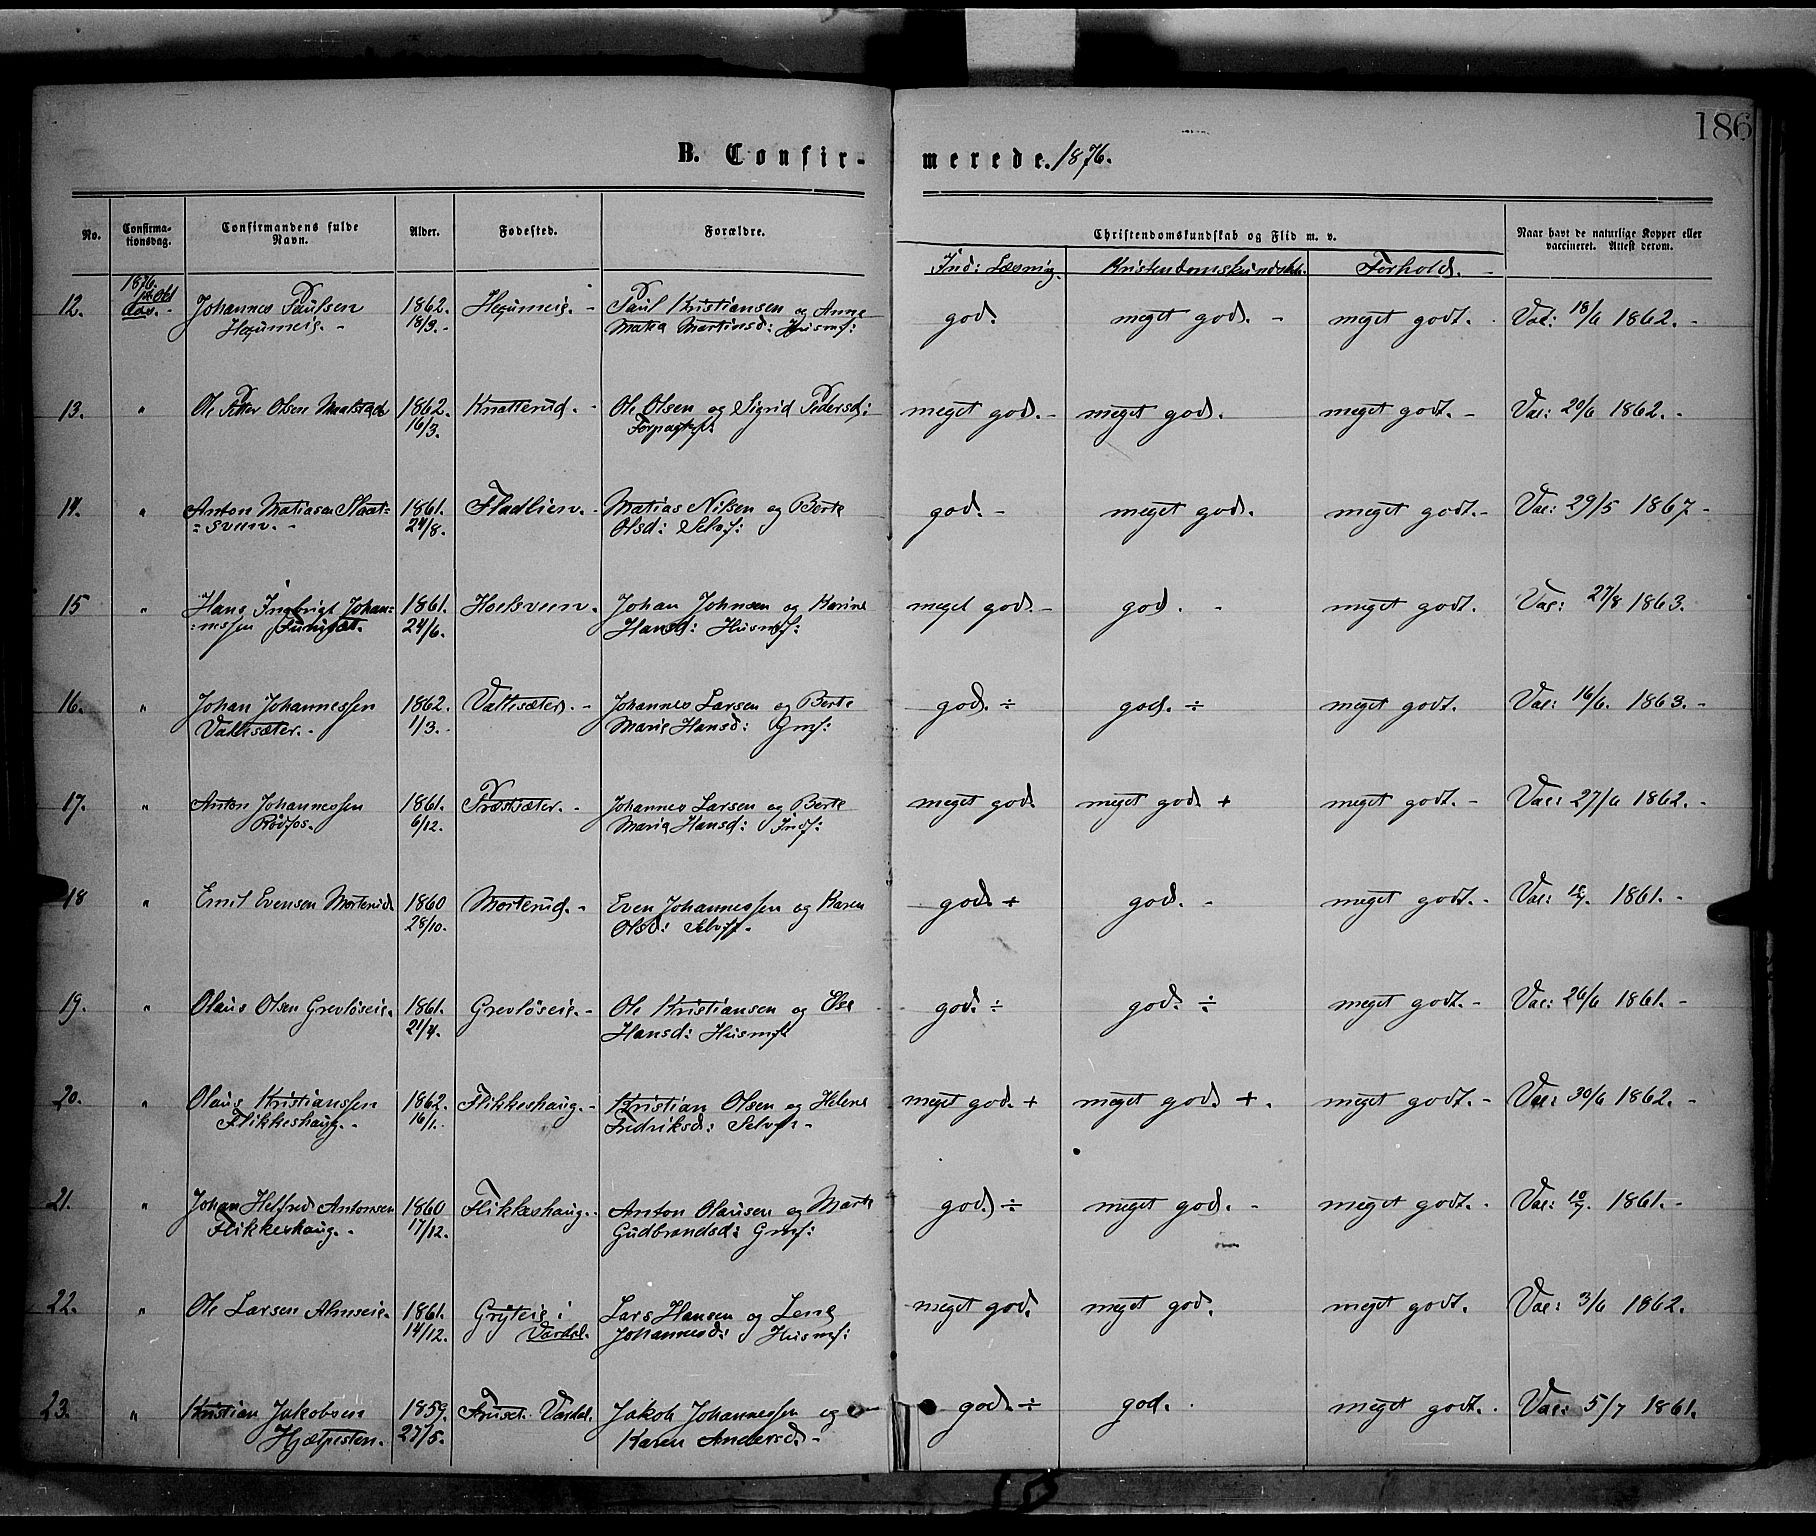 186
B. Confir- merede. 1876.
No. Confirma- Confirmandens fulde Alder. Fødested. Forældre. Christendomskundskab og Flid m. v. Naar havt de naturlige Kopper eller
tionsdag. Navn. vaccineret. Attest derom.
Ind: Læsning. Kristendomskundskb. Forhold. -
1876.
12. Johannes Paulsen 1862. Hegumeie. - Paul Kristiansen og Anne god. meget god. - meget godt. Vac: 18/6 1862. -
Hegumeie. - 18/3. - Matea Martinsd: Husmf:
13. " Ole Petter Olsen 1862. Knatterud. - Ole Olsen og Sigrid Pedersd: meget god. - meget god. meget godt. - Vac: 20/6 1862. -
16/3. Forpagterf.
14. " Anton Matiasen Slaat- 1861. Fladlien. - Matias Nilsen og Berte god. - meget god. meget godt. - Vac: 29/5 1867 -
:sveen. - 24/8. Olsd: Selvf:
15 " Hans Ingbrigt Johan- 1861. Hoelsveen. Johan Johnsen og Karine meget god. - god. - meget godt. Vac: 27/8 1863.
:nessen 24/6. Hansd: Husmf:
16. " Johan Johannessen 1862. Valtesæter. - Johannes Larsen og Berte god. ÷ god. ÷ meget godt. Vac: 16/6. 1863. -
Valtesæter. - 1/3. - Marie Hansd: Gmf:
17. " Anton Johannessen 1861. Præstsæter. - Johannes Larsen og Berte meget god meget god + meget godt. - Vac: 27/6 1862. -
Rödfos. - 6/12. Maria Hansd: Indf:
18 " Emil Evensen Morterud. 1860 Morterud. - Even Johannessen og Karen god. + god. - meget godt. - Vac: 1861. -
28/10. Olsd: Selvf. -
19. " Olaus Olsen Grevlöseie. 1861. Grevlöseie. - Ole Kristiansen og Else god. ÷ god. ÷ meget godt. - Vac: 26/6 1861. -
21/4. Hansd: Husmf
20. " Olaus Kristianssen 1862. Flikkeshaug. - Kristian Olsen og Helene meget god. + meget god +. meget godt. - Vac: 30/6 1862. -
Flikkeshaug. - 16/1. Fredriksd: Selvf: -
21. " Johan Helfred Antonsen 1860 Flikkeshaug. - Anton Olausen og Marte god. ÷ meget god. - meget godt. - Vac: 10/7. 1861. -
Flikkeshaug. - 17/12. Gudbrandsd: Gmf:
22. " Ole Larsen Alm­seie. 1861. Gryteie i Lars Hansen og Lene meget god. meget god. meget godt. Vac: 3/6 1862.
14/12. Vardal. Johannesd: Husmf:
23. " Kristian Jakobsen 1859. Fruset. Vardal. Jakob Johannessen og god. ÷ god. meget godt. Vac: 5/7 1861.
Hjælpesten. - 27/5. Karen Andersd. -